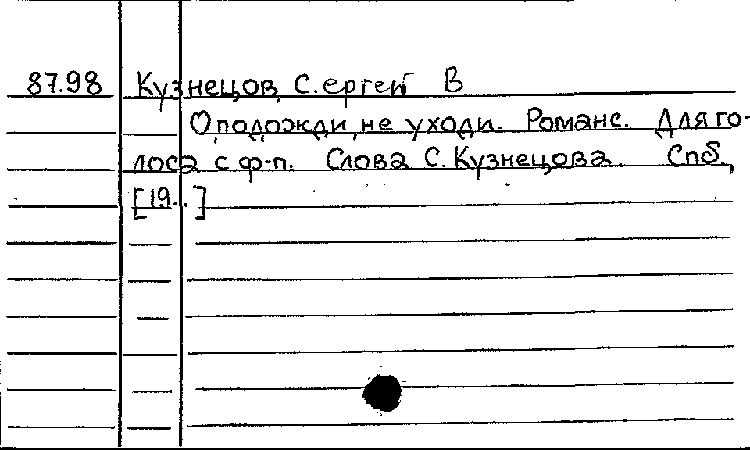 87.98 Кузнецов, С.ергей В
О подожди, не уходи. Романс. Для го-
лоса с ф-п. Слова С. Кузнецова. Спб.,
[19..]